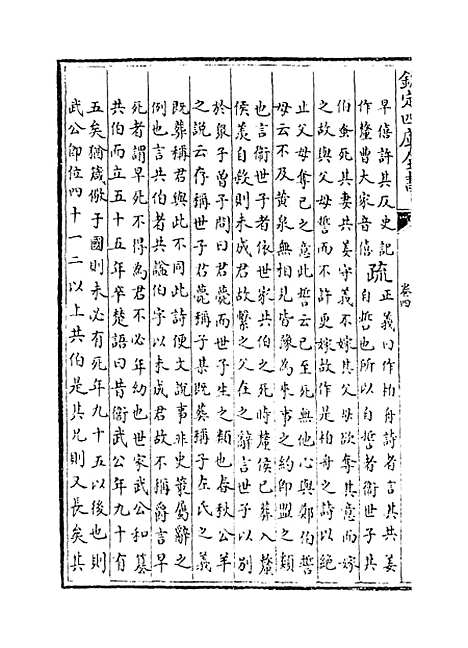 欽定四庫全書
卷四
早僖許其反史記
作釐曹大家音僖
疏
正義曰作柏舟詩者言共姜
自誓也所以自誓者衛世子共
伯蚤死其妻共姜守義不嫁其父母欲奪其意而嫁
之故與父母誓而不許更嫁故作是柏舟之詩以絶
止父母奪己之意此誓云己至死無他心與鄭伯誓
母云不及黄泉無相見皆豫為來事之約即盟之類
也言衛世子者依世家共伯之死時釐侯已葬入釐
侯羨自殺則未成君故繫之父在之辭言世子以别
於衆子曾子問曰君薨而世子生之類也春秋公羊
之說云存稱世子君薨稱子某既葬稱子左氏之義
既葬稱君與此不同此詩便文說事非史策屬辭之
例也言共伯者共諡伯字以未成君故不稱爵言早
死者謂早死不得為君不必年幼也世家武公和簒
共伯而立五十五年卒楚語曰昔衛武公年九十有
五矣猶箴儆于國則未必有死年九十五以後也則
武公即位四十一二以上共伯是其兄則又長矣其